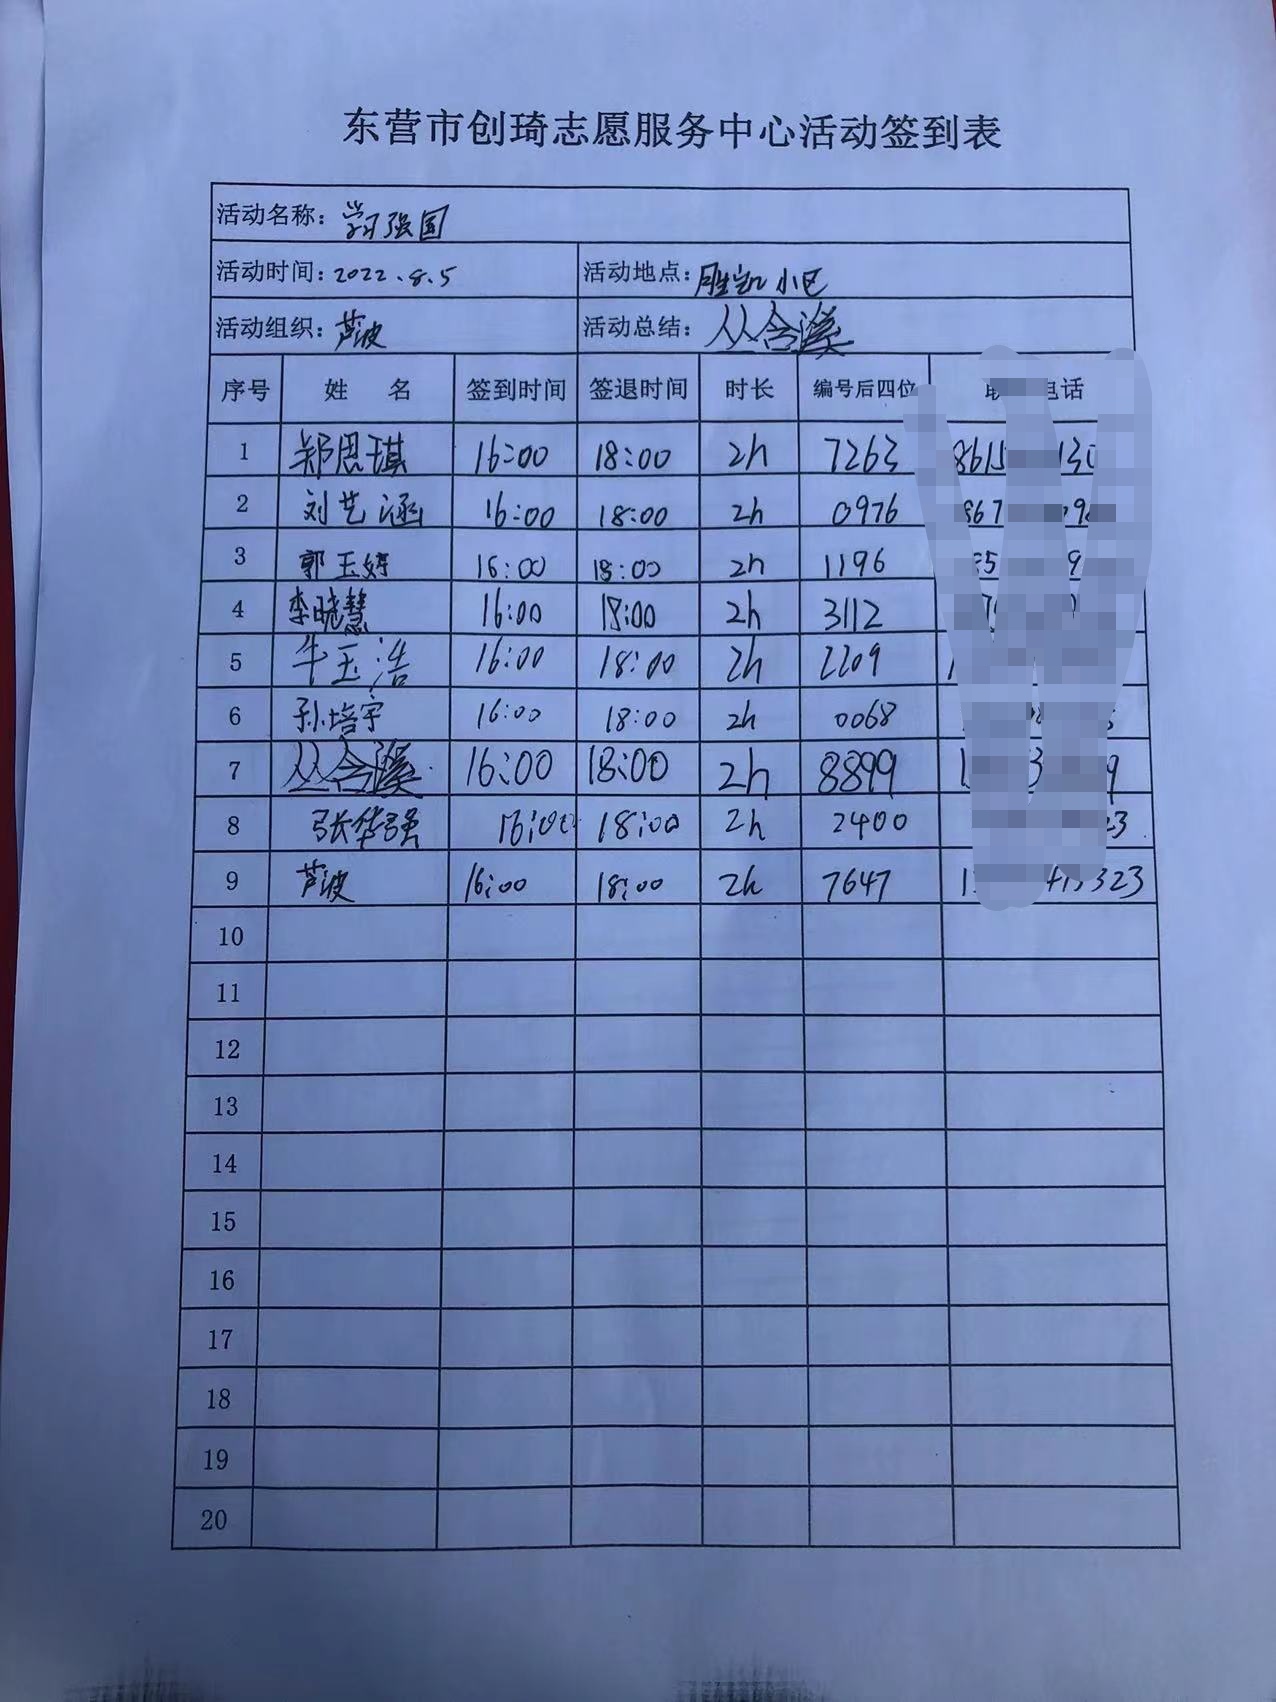 东营市创琦志愿服务中心活动签到表
活动名称: 学习强国
活动时间: 2022.8.5 活动地点: 胜凯小区
活动组织: 芦波 活动总结: 丛含溪
序号 姓 名 签到时间 签退时间 时长 编号后四位 电话
1 郑思琪 16:00 18:00 2h 7263
2 刘艺涵 16:00 18:00 2h 0976
3 郭玉婷 16:00 18:00 2h 1196
4 李晓慧 16:00 18:00 2h 3112
5 牛玉浩 16:00 18:00 2h 2209
6 孙培宇 16:00 18:00 2h 0068
7 丛含溪 16:00 18:00 2h 8899
8 张华强 16:00 18:00 2h 2400
9 芦波 16:00 18:00 2h 7647
10
11
12
13
14
15
16
17
18
19
20